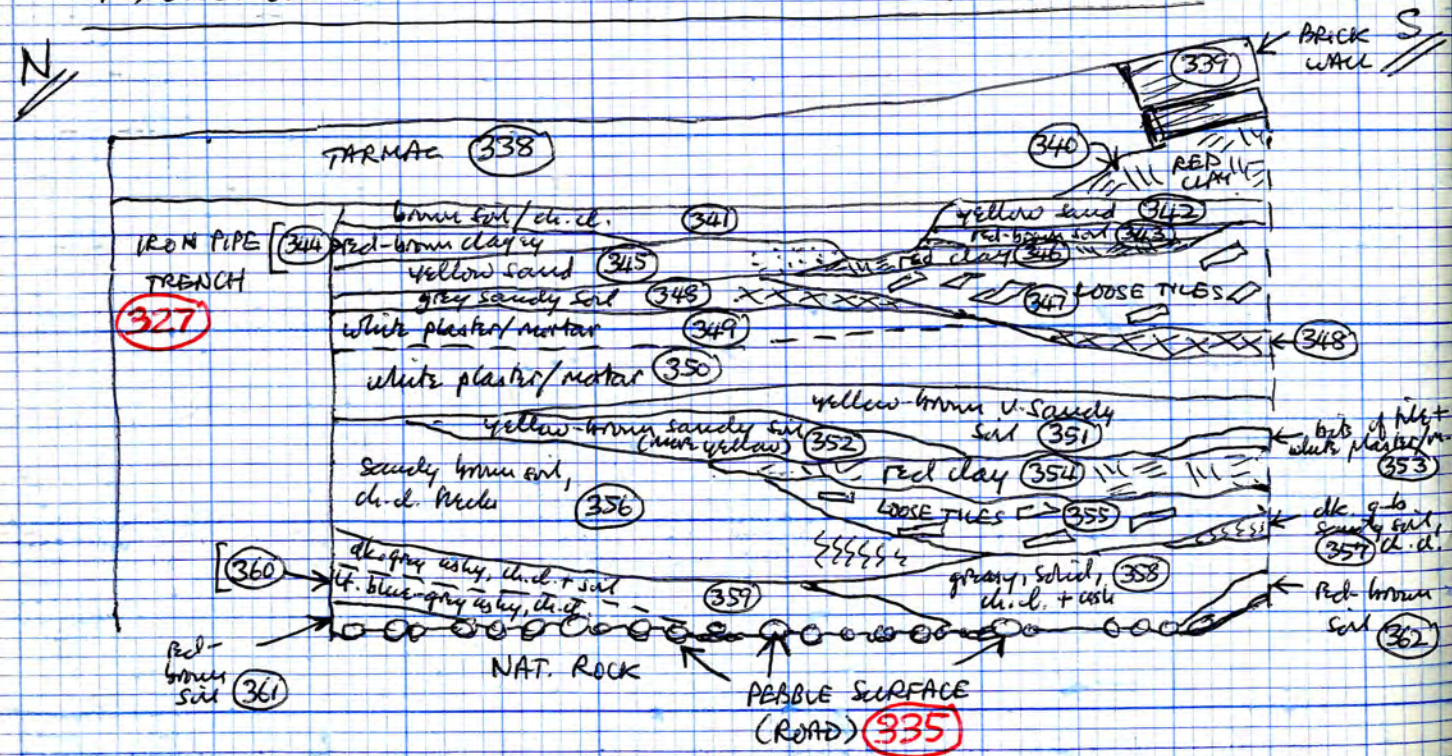 N
S
BRICK
WALL
339
TARMAC 338
340
RED
CLAY
IRON PIPE
TRENCH
327
brown soil/ch.cl. 341
yellow sand 342
344 red-brown clayey
red-brown soil 343
yellow sand 345
red clay 346
grey sandy soil 348
347 LOOSE TILES
white plaster/mortar 349
348
white plaster/mortar 350
yellow-brown v. sandy
soil 351
yellow-brown sandy soil
(more yellow) 352
bits of tile +
white plaster/m-
353
red clay 354
sandy brown soil,
ch.cl. flecks 356
LOOSE TILES 355
dk. g-b
sandy soil,
357 ch.cl.
360
dk. grey ashy, ch.cl. + soil
lt. blue-grey ashy, ch.cl.
359
greasy, solid, 358
ch.cl. + ash
Red-brown
soil 362
red-
brown
soil 361
NAT. ROCK
PEBBLE SURFACE
(ROAD) 335